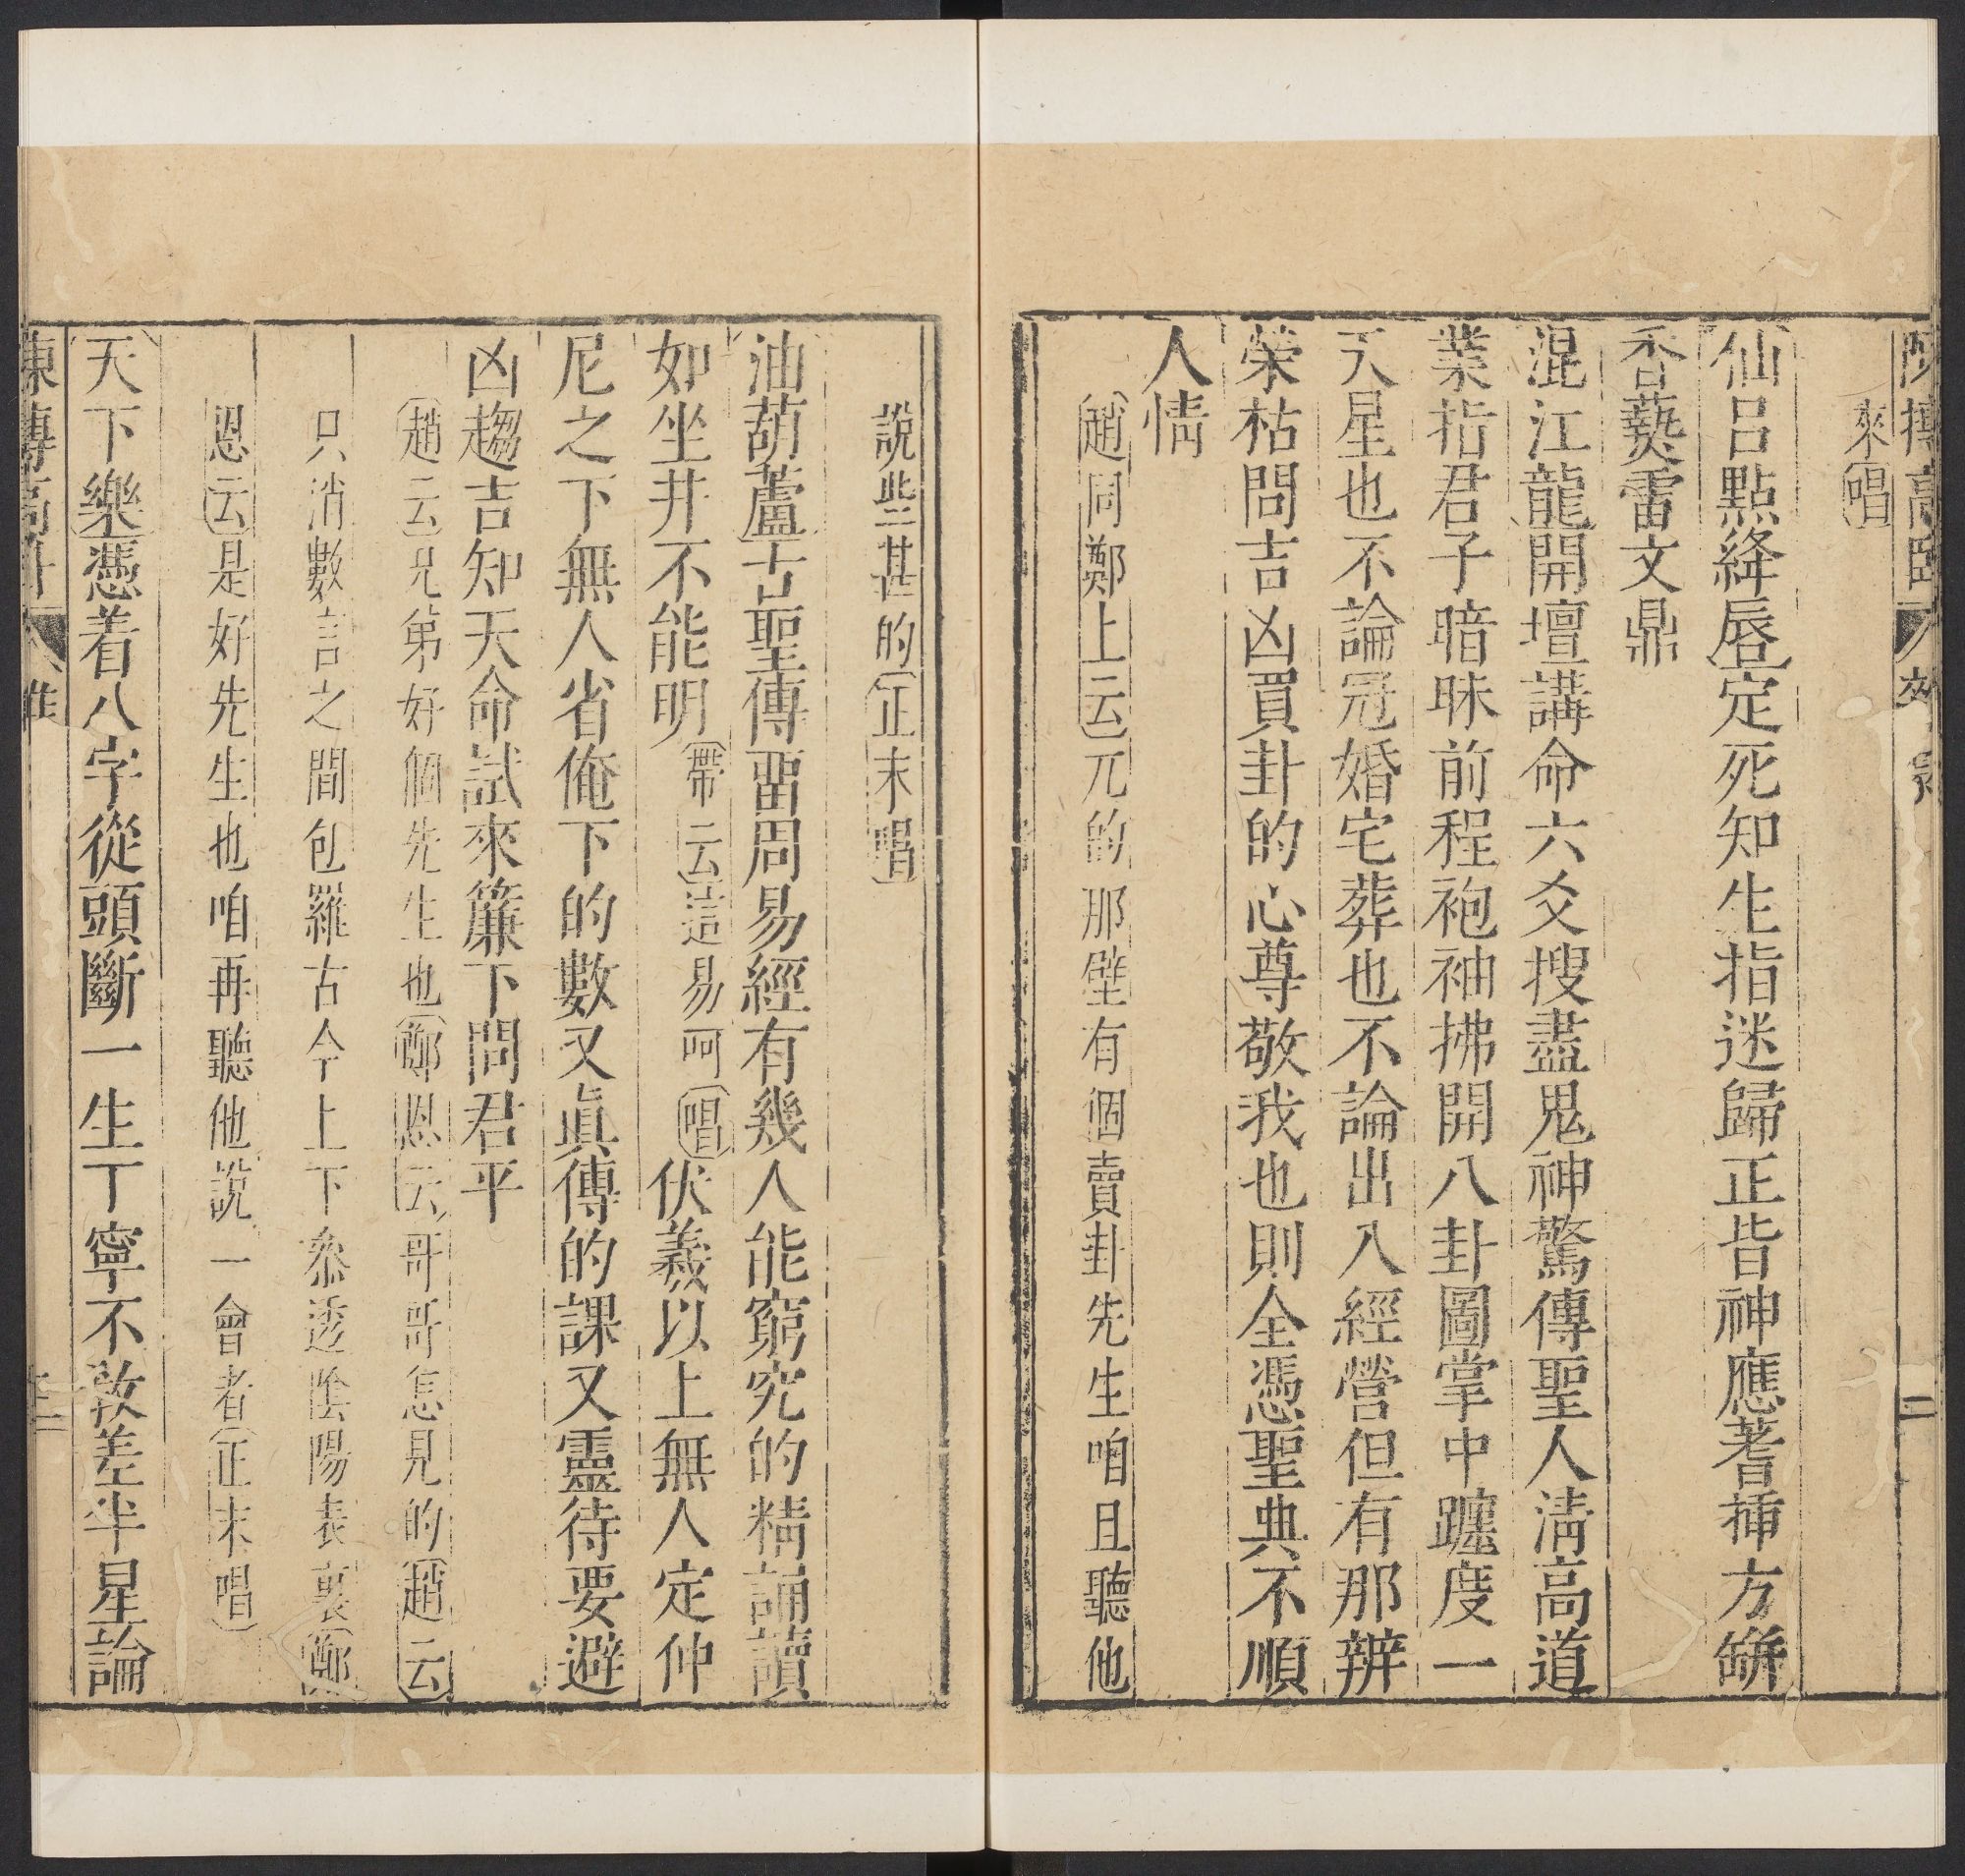 陳摶高臥
二
來唱
仙呂點絳唇定死知生指迷歸正皆神應蓍揷方缾
香爇雷文鼎
混江龍開壇講命六爻搜盡鬼神驚傳聖人淸高道
業指君子暗昧前程袍袖拂開八卦圖掌中躔度一
天星也不論冠婚宅葬也不論出入經營但有那辨
榮枯問吉凶買卦的心尊敬我也則全憑聖典不順
人情
趙同鄭上云兀的那壁有個賣卦先生咱且聽他
說些甚的正末唱
油葫蘆古聖傳畱周易經有幾人能窮究的精誦讀
如坐井不能明帶云這易呵唱伏羲以上無人定仲
尼之下無人省俺下的數又眞傳的課又靈待要避
凶趨吉知天命試來簾下問君平
趙云兄弟好個先生也鄭恩云哥哥怎見的趙云
只消數言之間包羅古今上下叅透陰陽表裏鄭
恩云是好先生也咱再聽他說一會者正末唱
天下樂憑着八字從頭斷一生丁寧不敢差半星論